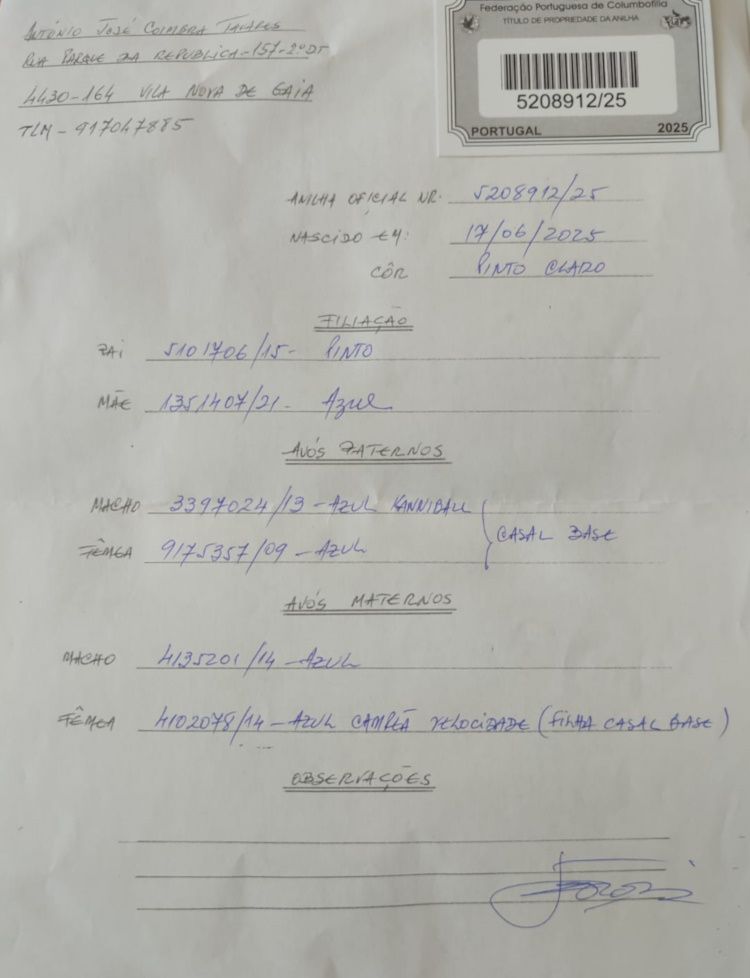 António José Coimbra Tavares
Rua Parque da Republica-157-2ºDT
4430-164 Vila Nova de Gaia
TLM-917047885
Federação Portuguesa de Columbofilia
TÍTULO DE PROPRIEDADE DA ANILHA
5208912/25
PORTUGAL 2025
ANILHA OFICIAL NR. 5208912/25
NASCIDO EM: 17/06/2025
CÔR PINTO CLARO
FILIAÇÃO
PAI 5101706/15- PINTO
MÃE 1351407/21- Azul
AVÓS PATERNOS
MACHO 3397024/13-AZUL KANNIBALL
FÊMEA 9175357/09-AZUL
CASAL BASE
AVÓS MATERNOS
MACHO 4135201/14-AZUL
FÊMEA 4102078/14-AZUL CAMPEÃ VELOCIDADE (FILHA CASAL BASE)
OBSERVAÇÕES